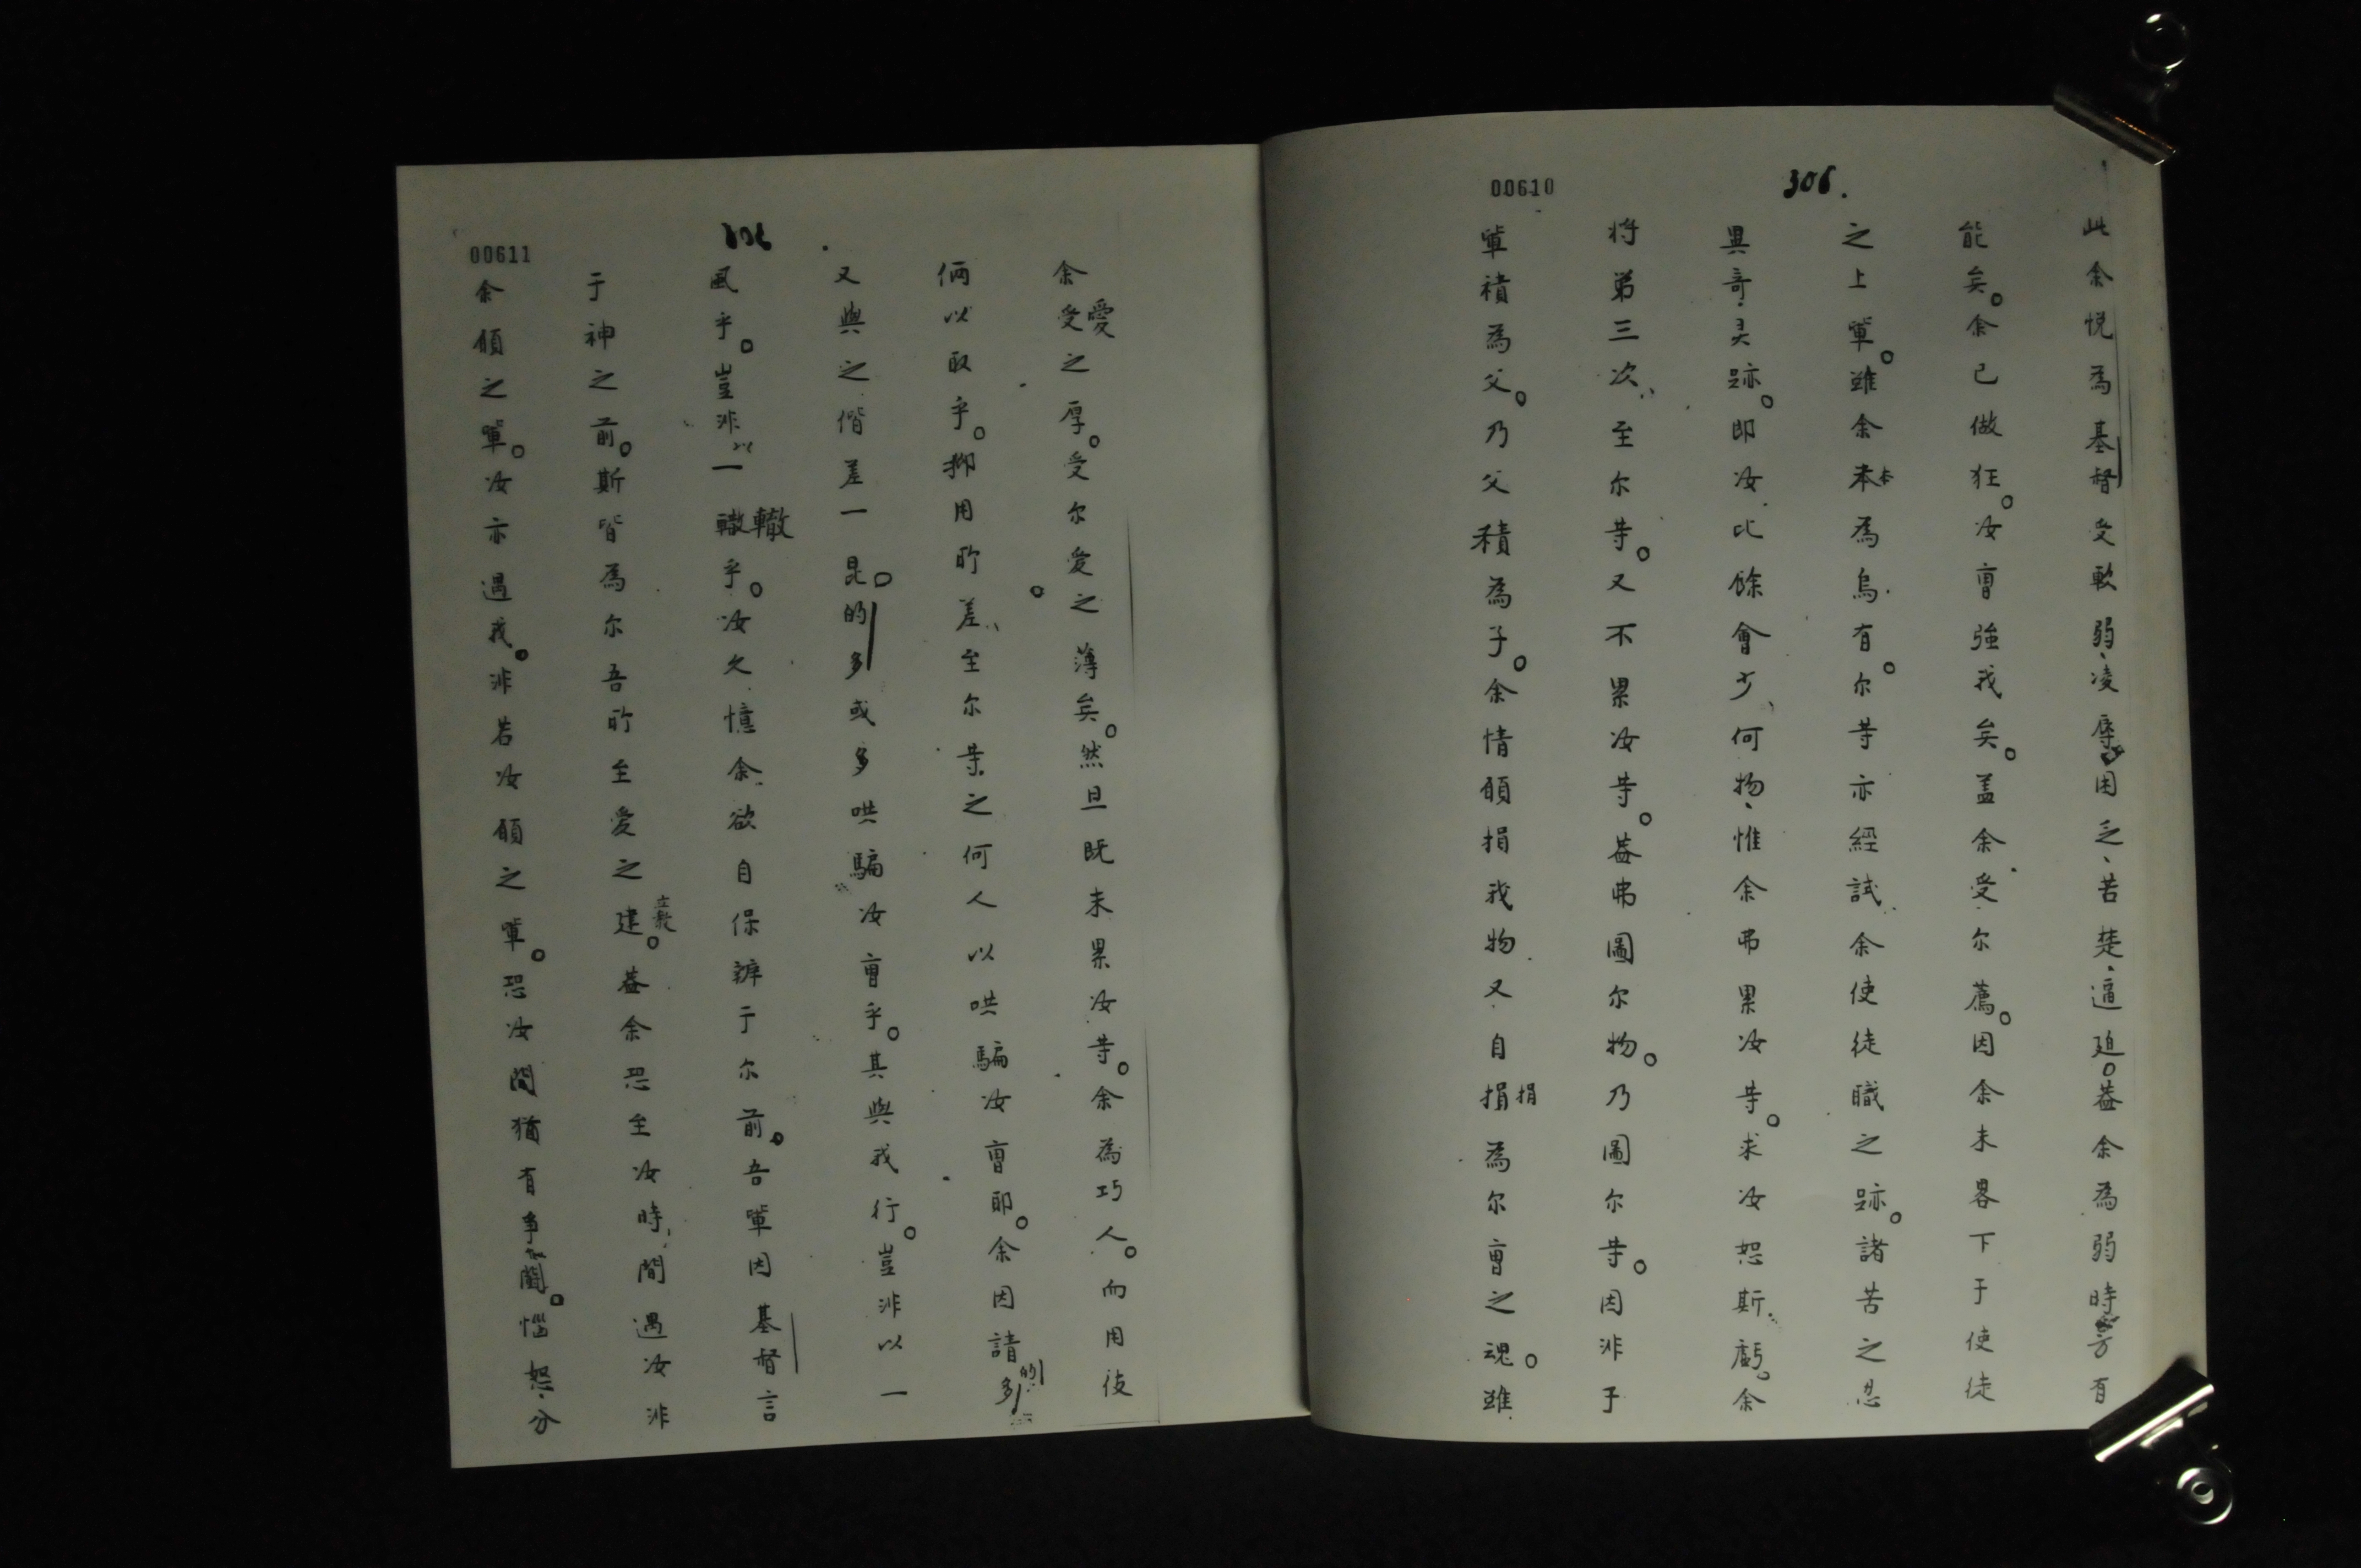 00610
306.
此余悅為基督受軟弱、凌辱、困乏、苦楚、逼迫。蓋余為弱時方有
能矣。余已做狂。汝曹強我矣。盖余受尔薦。因余未畧下于使徒
之上軰。雖余本為烏有。尔等亦經試余使徒職之跡。諸苦之忍
異竒灵跡。即汝比餘會少、何物、惟余弗累汝等。求汝恕斯虧。余
將弟三次、至尔等。又不累汝等。蓋弗圖尔物。乃圖尔等。因非子
軰積為父。乃父積為子。余情願捐我物又自捐為尔曹之魂。雖
捐
00611
306
余受之厚。受尔愛之薄矣。然旦既未累汝等。余為巧人。而用伎
愛
倆以取乎。抑用所差、至尔等之何人以哄騙汝曹耶。余因請的多
又與之偕差一昆。的多或多哄騙汝曹乎。其與我行。豈非以一
風乎。豈非以一轍乎。汝久憶余欲自保辦于尔前。吾軰因基督言
轍
于神之前。斯皆為尔吾所至愛之建。蓋余恐至汝時、間遇汝非
立教
余願之軰。汝亦遇我。非若汝願之軰。恐汝間猶有爭鬬。惱怒、分